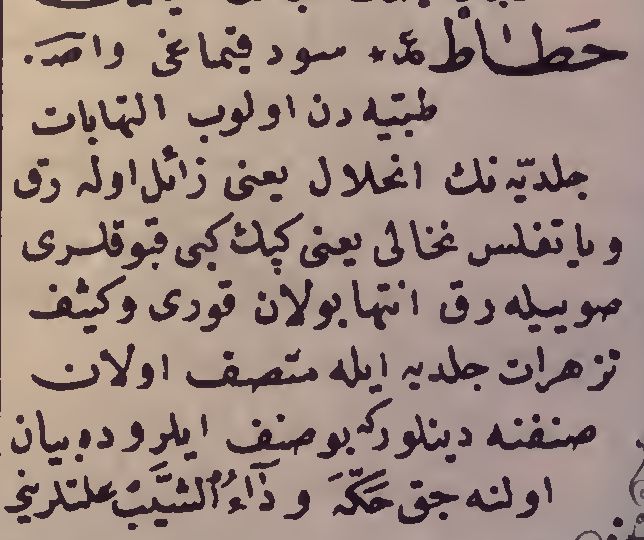 حطاط ع * سود قيماغى واصد.
طبّيه دن اولوب التهابات
جلديّه نك انحلال يعنى زائل اوله رق
وياتفلس نخالى يعنى كپك كبى قبوقلرى
صوييله رق انتها بولان قورى وكثيف
تزهرات جلديه ايله متصف اولان
صنفنه دينلوركه بوصنف ايلروده بيان
اولنه جق حَكَّه و دَآءُ الشَّيب علتلرينى